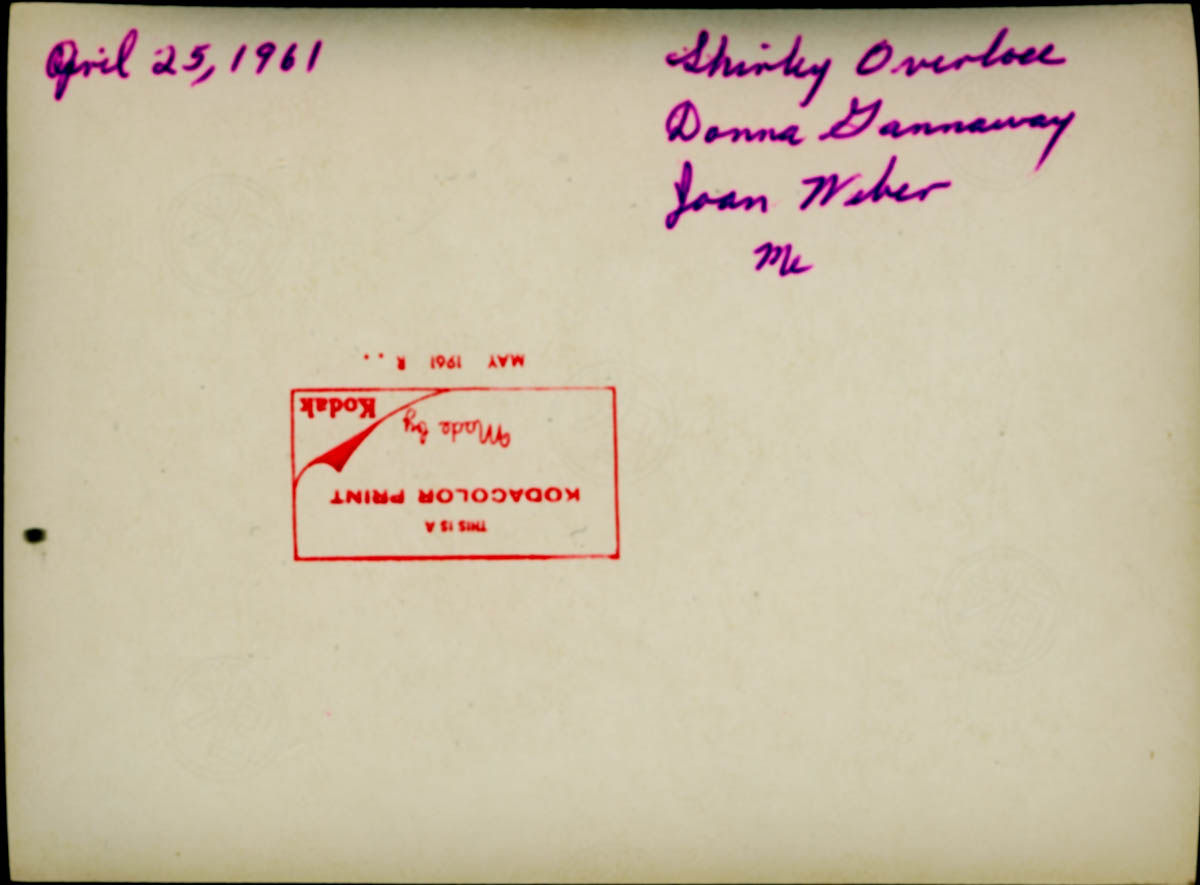 April 25, 1961
Shirley Overlock
Donna Gannaway
Joan Weber
Me
THIS IS A
KODACOLOR PRINT
Made by
Kodak
MAY 1961 R . .